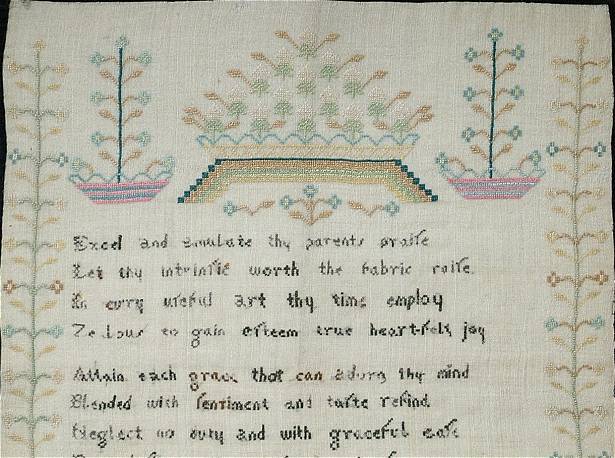 Excel and emulate thy parents praise
Let thy intrinsic worth the fabric raise
In evry useful art thy time employ
Zealous to gain esteem true heartfelt joy
Attain each grace that can adorn thy mind
Blended with sentiment and taste refind
Neglect no duty and with graceful ease